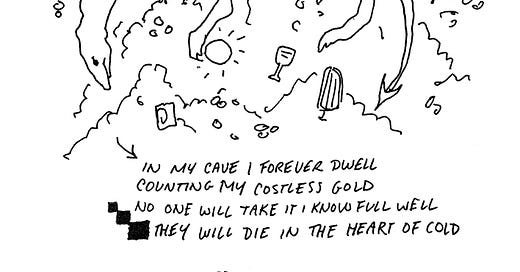 IN MY CAVE I FOREVER DWELL
COUNTING MY COSTLESS GOLD
NO ONE WILL TAKE IT I KNOW FULL WELL
THEY WILL DIE IN THE HEART OF COLD